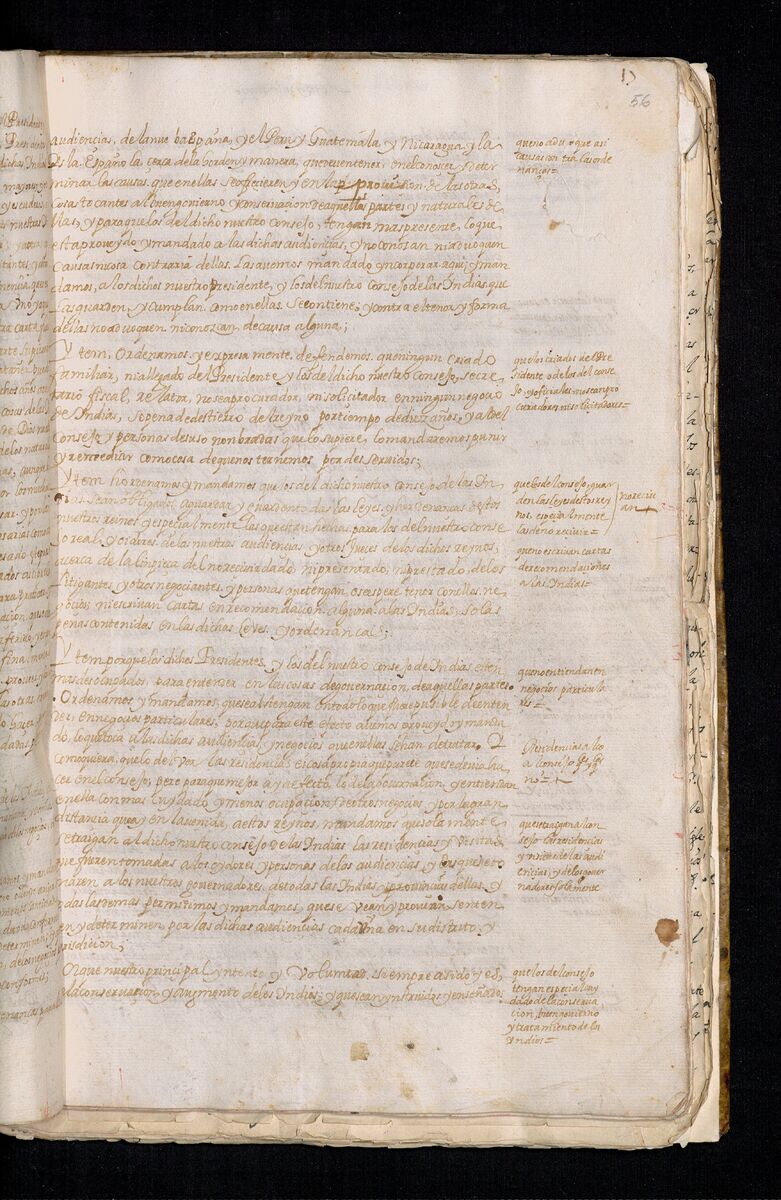 1)
56
audiencias, de la nueba españa, y el Peru y Guatemala, y Nicaragua y la
Isla Española cerca dela horden y manera, que deven tener, en el conoçer, y deter
minar las causas, que en ellas se offreçieren y en la provission de las otras
cosas tocantes al buen govierno y conservacion de aquellas partes y naturales de
llas, y para que los del dicho nuestro consejo, tengan mas presente, lo que
esta proveydo y mandado a las dichas audiencias, y no conozcan ni advoquen
causa nueva contraria dellas. Las avemos mandado yncorporar aqui, y man
damos, a los dichos nuestro presidente, y los del nuestro consejo de las Indias, que
las guarden, y cumplan como en ellas se contiene, y contra el tenor y forma
dellas no advoquen ni conozcan de causa alguna,;
Y tem, Ordenamos, y expresa mente, defendemos, que ningun criado
familiar, ni allegado del Presidente y los del dicho nuestro consejo, secre
tario fiscal, relator, no sea procurador, ni solicitador en ningun negoçio
de Indias, so pena de destierro del reyno por tiempo de diez años, y al del
consejo y personas de suso nonbradas que lo supiere, lo mandaremos punir
y remediar como cosa de que nos ternemos por desservidos;
Y tem hordenamos y mandamos que los del dicho nuestro consejo de las In
dias sean obligados, a guardar y guarden todas las leyes, y hordenanças destos
nuestros reinos y especialmente las questan hechas para los del nuestro conse
jo real, y oidores de las nuestras audiencias y otros Jueces de los dichos reynos,
acerca de la limpieça del no recivir dado, ni presentado, ni prestado, de los
litigantes, y otros negociantes, y personas que tengan, o se espere tener con ellos, ne
goçios; ni escrivan cartas en recomendacion alguna a las Indias, so las
penas contenidas en las dichas leyes, y ordenanças;
Y tem porque los dichos Presidentes, y los del nuestro consejo de Indias esten
mas desocupados, para entender en las cosas de governacion, de aquellas partes.
Ordenamos y mandamos, que se abstengan en todo lo que fuere pusible de enten
der en negocios particulares. porque para este efecto avemos proveydo y manda
do, lo que toca a las dichas audiencias, y negocios que en ellas se han de tratar. Y
como quiera, que lo de ver las residencias es cosa propia que parece que se devia ha
cer en el consejo; pero para que mejor aya efecto, lo de la governacion, y entiendan
en ella con mas cuydado, y menos ocupacion, de otros negoçios y por la gran
distancia que ay en la venida, a estos reynos, mandamos que sola mente
se traigan al dicho nuestro consejo de las Indias las residencias y visitas,
que fueren tomadas a los oydores y personas de las audiencias, y las que se to
maren a los nuestros governadores, de todas las Indias, y provincias dellas, y
todas las demas permitimos y mandamos, que se vean y provean senten
cien y determinen, por las dichas audiencias cada una en su distrito, y
jurisdicion;
O que nuestro prinçipal yntento y voluntad, siempre a sido y es,
de la conservacion, y augmento de los Indios, y que sean ynstruidos y enseñados
que no advoque ni
causas contra las orde
nanças=
que los criados del Pre
sidente o de los del conse
jo, y oficiales no sean pro
curadores ni solicitadores=
que los del consejo, guar
den las leyes destos rey
nos, especialmente
las de no recivir=
no reciu
an +
que no escrivan cartas
de recomendaciones
a las Indias=
que no entiendan en
negocios particula
res=
que se traigan al con
sejo las residencias
y visitas de las audi
encias, y de los gover
nadores solamente
que los del consejo
tengan especial cuy
dado de la conserva
cion, buen govierno
y tratamiento de los
Indios=